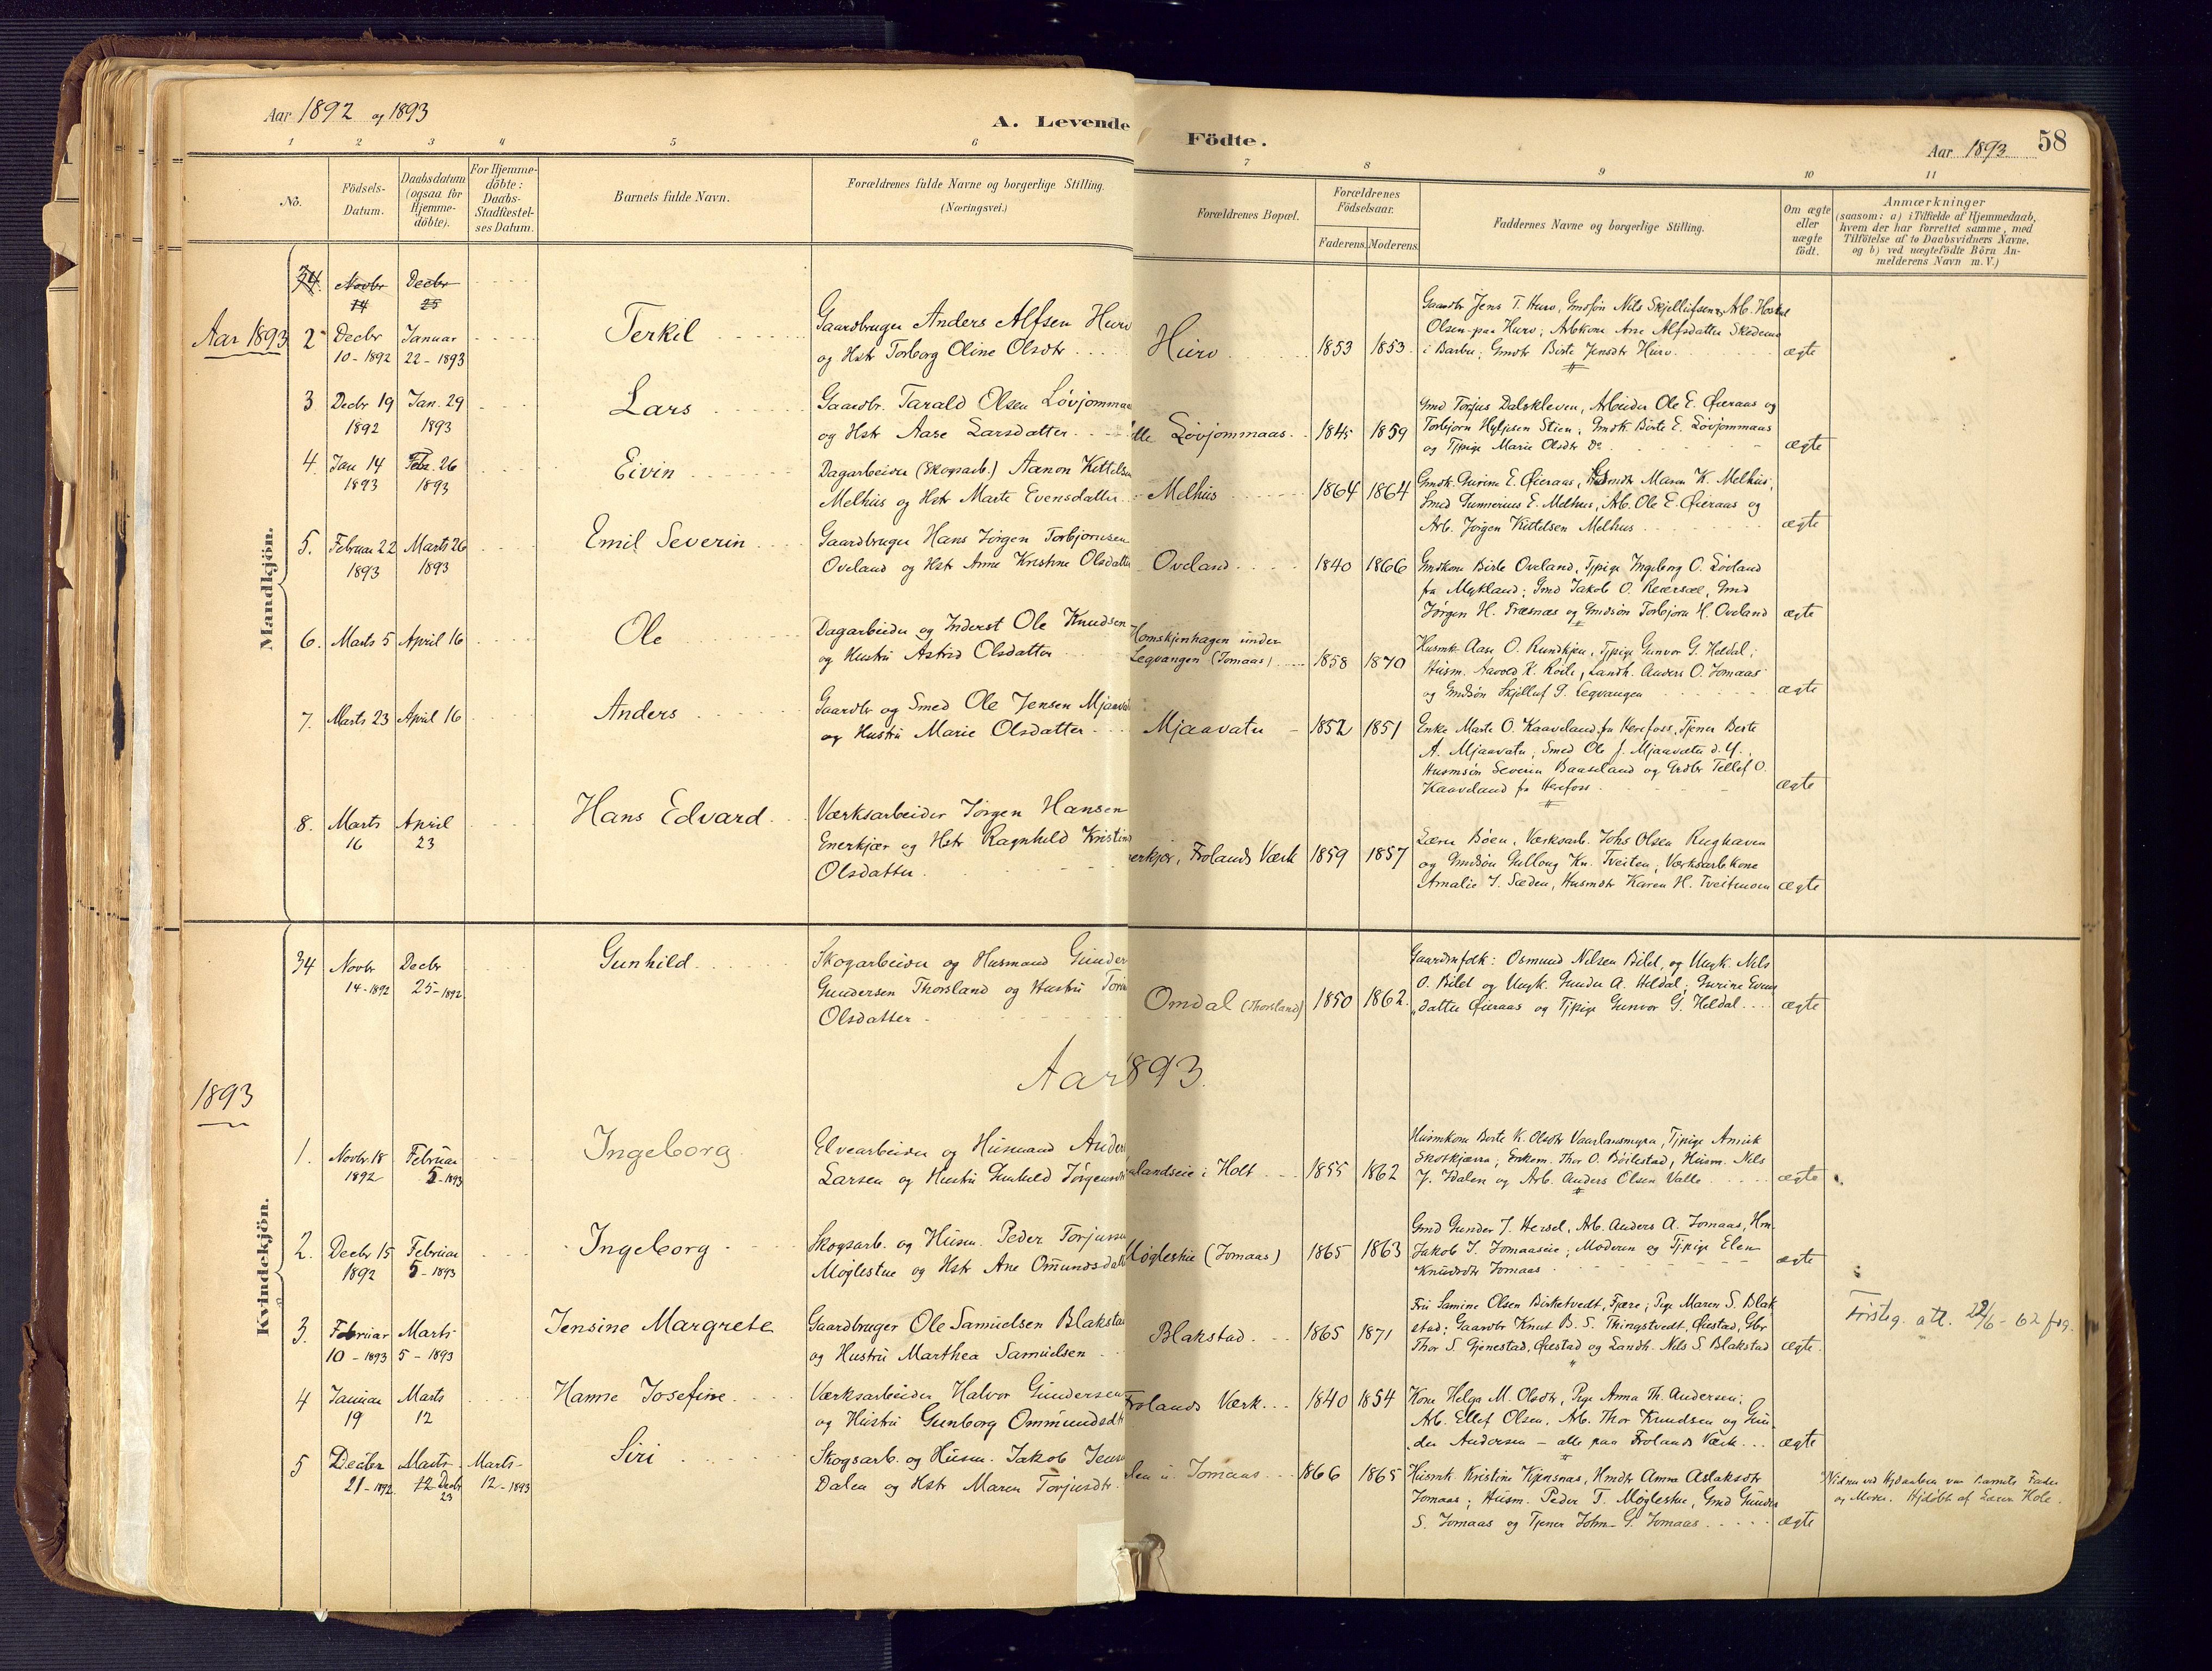 Aar 1892 og 1893
A. Levende Födte.
Aar 1893
58
1 2 3 4 5 6 7 8 9 10 11
No.
Födsels-Datum.
Daabsdatum (ogsaa for Hjemme-döbte).
For Hjemme-döbte: Daabs-Stadfæstel-ses Datum.
Barnets fulde Navn.
Forældrenes fulde Navne og borgerlige Stilling.
(Næringsvei.)
Forældrenes Bopæl.
Forældrenes Födselsaar.
Faderens. Moderens.
Faddernes Navne og borgerlige Stilling.
Om ægte eller uægte födt.
Anmærkninger
(saasom: a) i Tilfælde af Hjemmedaab,
hvem der har forrettet samme, med
Tilföielse af to Daabsvidners Navne,
og b) ved uægtefödte Börn An-
melderens Navn m. V.)
Mandkjön.
34. Novbr 14 Decbr 25
Aar 1893
2 Decbr 10-1892 Januar 22-1893
Terkil
Gaardbruger Anders Alfsen Hurv
og Hstr Torborg Oline Olsdtr
Hurv 1853 1853
Gaardbr Jens T. Hurv, Gmdsøn Nils Skjellufsen, Arb.
Olsen paa Hurv; Arbkone Ane Alfsdatter
i Barbu; Gmdtr Birte Jensdtr Hurv
ægte
3 Decbr 19 1892 Jan. 29 1893
Lars
Gaardbr. Tarald Olsen Løvjommaas
og Hstr Aase Larsdatter
Løvjommaas 1845 1859
Gmd Torjus Dalskleven, Arbeider Ole E. Øieraas og
Torbjørn Stien; Gmdk. Birte E. Løvjommaas
og Tjpige Marie Olsdtr Do
ægte
4. Jan 14 1893 Febr. 26 1893
Eivin
Dagarbeider (Skogsarb.) Aanon Kittelsen
Melhus og Hstr Marte Evensdatter
Melhus 1864 1864
Gmdk. Gurine E. Øieraas, Gmdtr Maren K. Melhus;
Gmd Gunnerius E. Melhus, Arb. Ole E. Øieraas og
Arb. Jørgen Kittelsen Melhus
ægte
5. Februar 22 1893 Marts 26 1893
Emil Severin
Gaardbruger Hans Jörgen Torbjørnsen
Oveland og Hstr Anne Kristine Olsdatter
Oveland 1840 1866
Gmdkone Birte Oveland, Tjpige Ingeborg O. Løvland
fra Mykland; Gmd Jakob O. Reiersøl, Gmd
Jørgen H. Træsnæs og Gmdsøn Torbjørn H. Oveland
ægte
6. Marts 5 April 16
Ole
Dagarbeider og Inderst Ole Knudsen
og Hustru Astrid Olsdatter
Homskjenhagen under
Legvangen (Jomaas) 1858 1870
Husmk. Aase O. Rundkjøn, Tjpige Gunvor G. Heldal;
Husm. Aavold K. Roile, Landh. Anders O. Jomaas
og Gmdsøn Skjelluf P. Legvangen
ægte
7. Marts 23 April 16
Anders
Gaardbr og Smed Ole Jensen Mjaavatn
og Hustru Marie Olsdatter
Mjaavatn 1852 1851
Enke Marte O. Kaaveland fra Herefoss, Tjener Berte
A. Mjaavatn, Smed Ole J. Mjaavatn d. Y.,
Husmsøn Severin Baaseland og Grdbr Tellef O.
Kaaveland fr Herefoss
ægte
8. Marts 16 April 23
Hans Edvard
Værksarbeider Jørgen Hansen
Enerkjær og Hstr Ragnhild Kristine
Olsdatter
erkjær, Frolands Værk 1859 1857
Lærer Bøen, Værksarb. Johs Olsen Rughaven
og Gmdsøn Gullaug Kn. Tveiten, Værksarbkone
Amalie J. Sæden, Husmdtr Karen H. Tveitmoen
ægte
Kvindekjön.
34 Novbr 14-1892 Decbr 25-1892
Gunhild
Skogarbeider og Husmand Gunder
Gundersen Thorsland og Hustru
Olsdatter
Omdal (Thorsland) 1850 1862
Gaardmfolk: Osmund Nilsen Bilet, og Ungk. Nils
O. Bilet og Ungk. Gunder A. Heldal; Gurine Evens
datter Øieraas og Tjpige Gunvor G. Heldal
ægte
Aar 1893.
1893
1. Novbr. 18 1892 Februar 5-1893
Ingeborg
Elvearbeider og Husmand Anders
Larsen og Hustru Gunhild Jørgensdtr
alandseie i Holt 1855 1862
Husmkone Berte K. Olsdtr Vaarlansmyra, Tjpige
Skotkjærra; Enkem. Thor O. Bøilestad, Husm. Nils
J. Dalen og Arb. Anders Olsen Valle
ægte
2. Decbr 15 1892 Februar 5-1893
Ingeborg
Skogsarb. og Husm. Peder Torjussen
Møglestue og Hstr Ane Omundsdatter
Møglestue (Jomaas) 1865 1863
Gmd Gunder J. Hersel, Arb. Anders A. Jomaas, Hm.
Jakob J. Jomaaseie; Moderen og Tjpige Elen
Knudsdtr Jomaas
ægte
3. Februar 10-1893 Marts 5-1893
Jensine Margrete
Gaardbruger Ole Samuelsen Blakstad
og Hustru Marthea Samuelsen
Blakstad 1865 1871
Fru Samine Olsen Birketvedt, Fjære; Pige Maren S. Blak
stad; Gaardbr Knut B. S. Thingstvedt, Øiestad, Gbr
Thor S. Gjenestad, Øiestad og Landh. Nils S. Blakstad
ægte
att. 22/6-62
4 Januar 19 Marts 12
Hanne Josefine
Værksarbeider Halvor Gundersen
og Hustru Gunborg Ommundsdtr
Frolands Værk 1840 1854
Kone Helga M. Olsdtr, Pige Anna Th. Andersen;
Arb. Ellef Olsen, Arb. Thor Knudsen og Gun
der Andersen – alle paa Frolands Værk
ægte
5 Decbr 21-1892 Marts 12 Decbr 23 Marts 12-1893
Siri
Skogsarb. og Husm. Jakob Jensen
Dalen og Hstr Maren Torjusdtr
len u. Jomaas 1866 1865
Husmk. Kristine Kjønsnas, Hmdtr Anna Aslaksdtr
Jomaas; Husm. Peder T. Møglestue, Gmd Gunder
S. Jomaas og Tjener John G. Jomaas
ægte
Vidner ved Hjdaaben var Barnets Fader
og Moder. Hjdøbt af Hole.